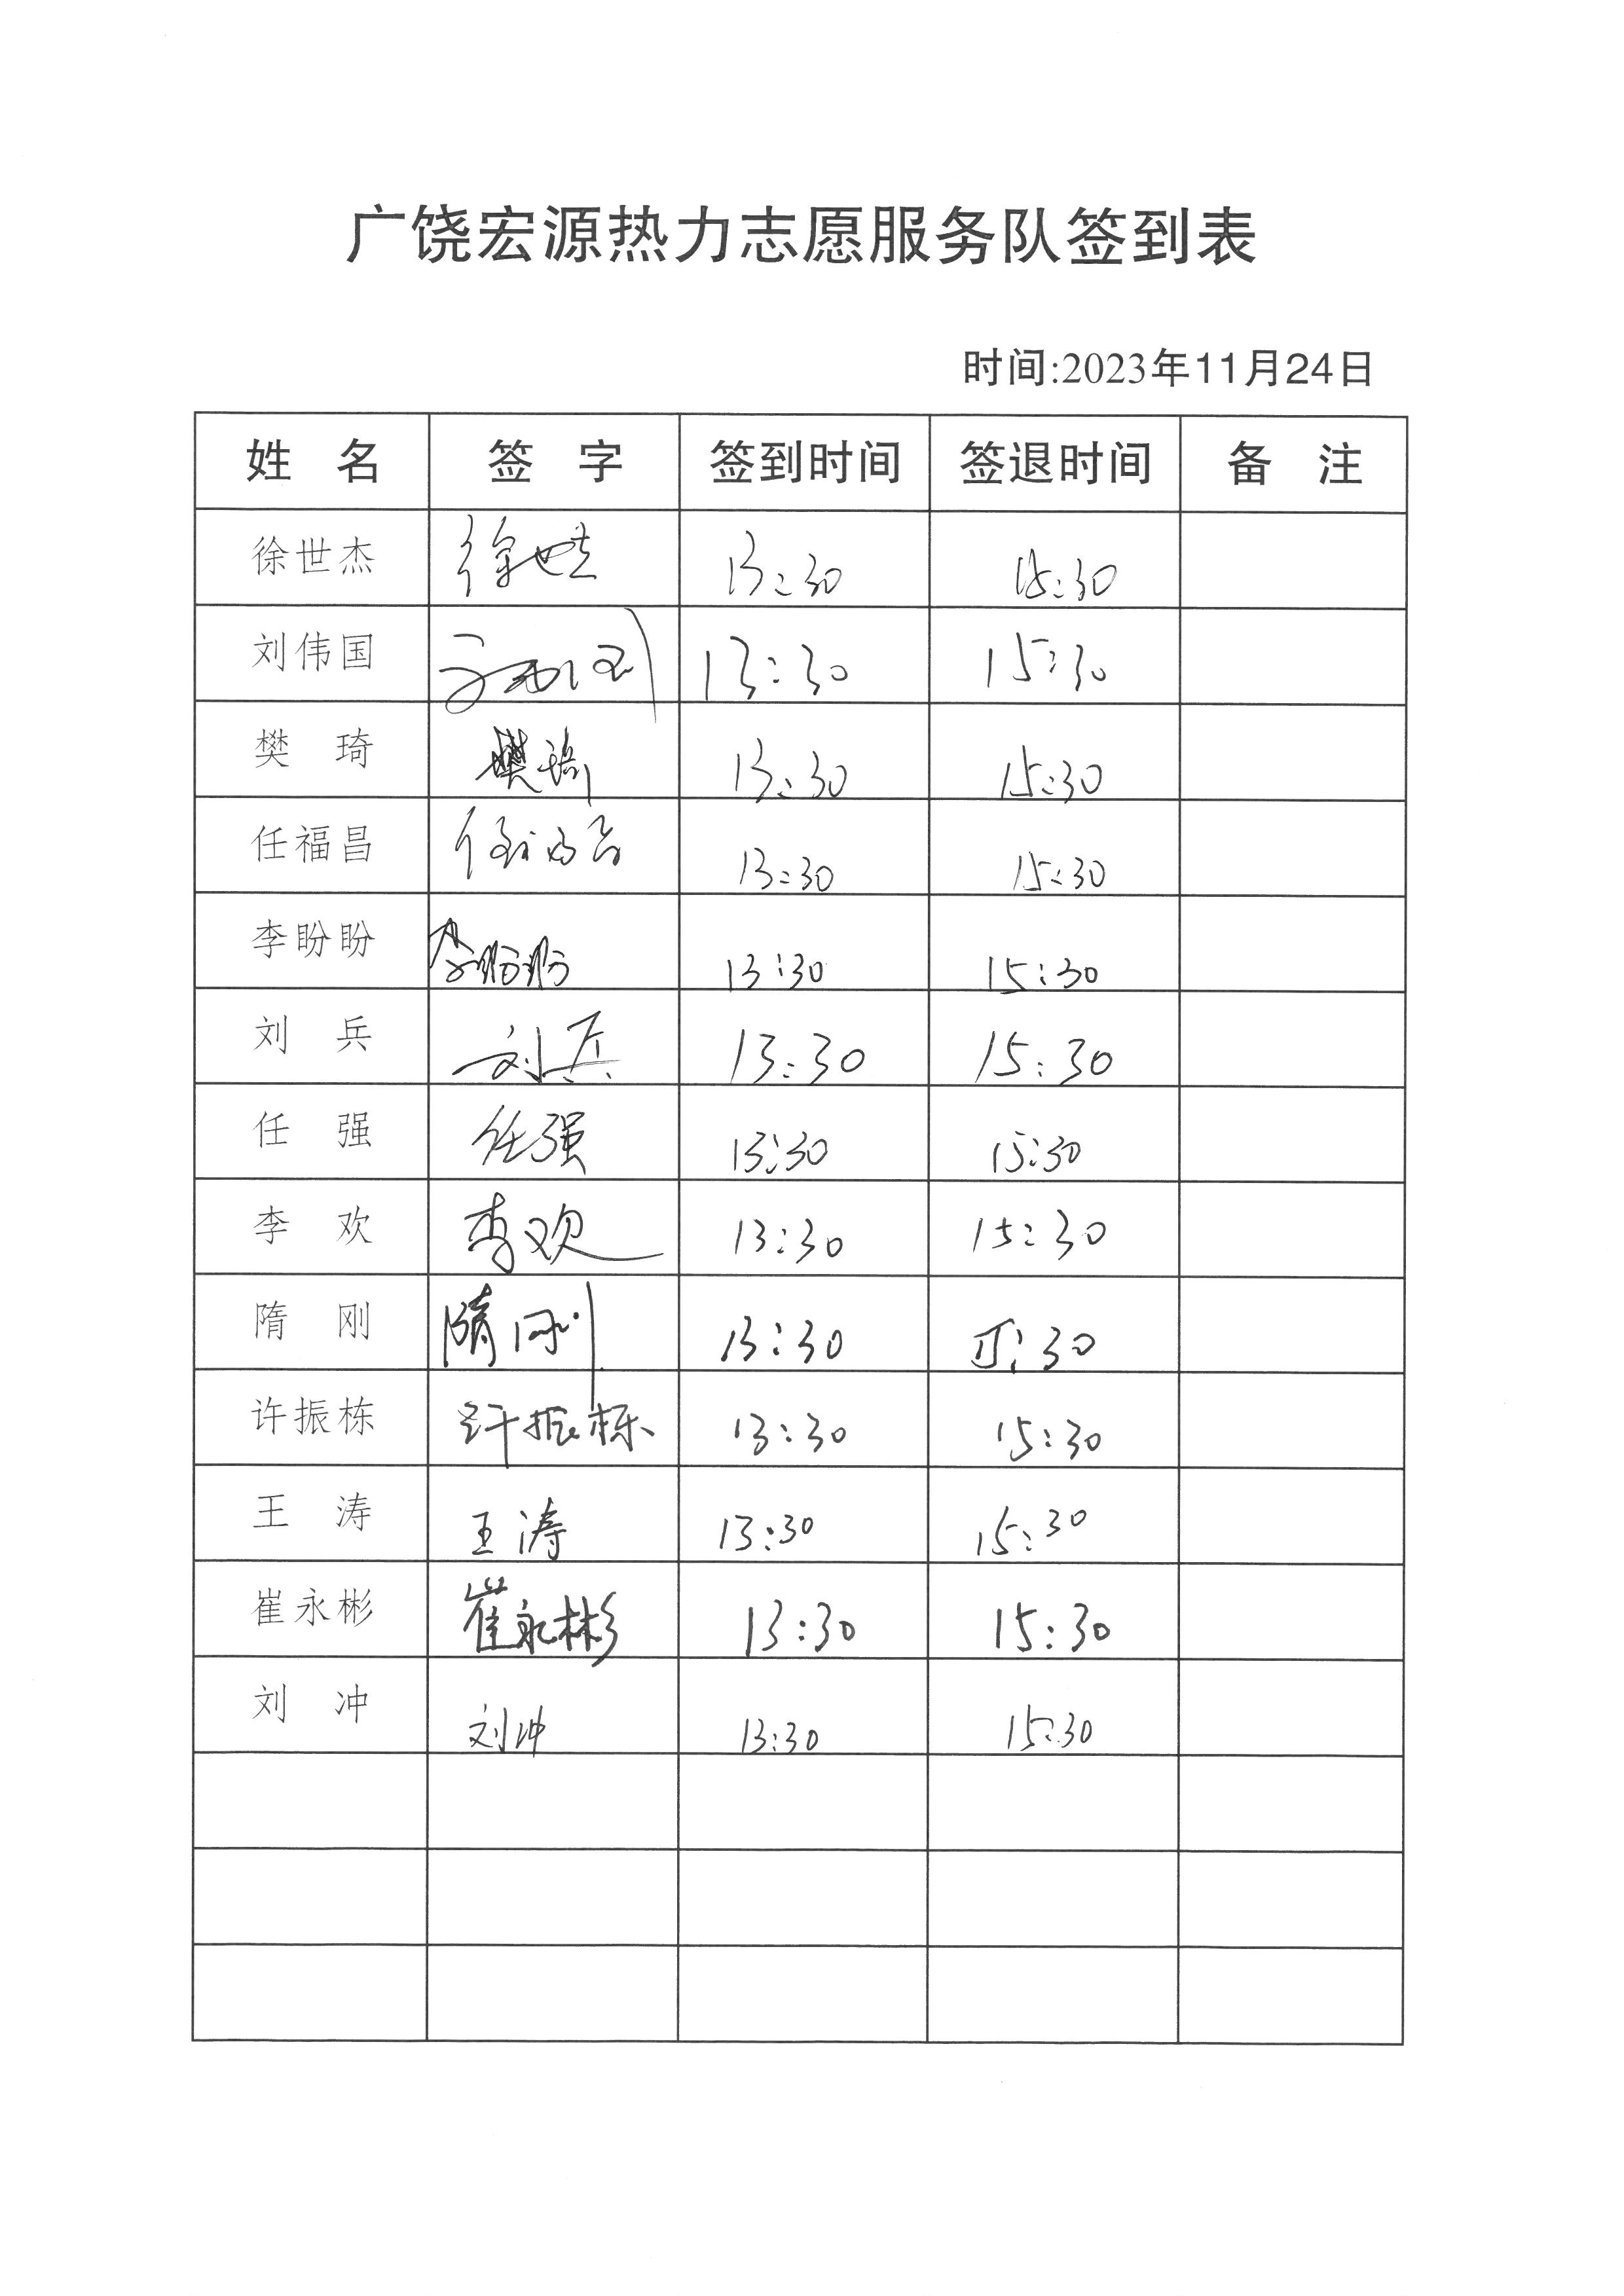 广饶宏源热力志愿服务队签到表
时间:2023年11月24日
姓 名 签 字 签到时间 签退时间 备 注
徐世杰 徐世杰 13:30 15:30
刘伟国 13:30 15:30
樊 琦 樊琦 13:30 15:30
任福昌 任福昌 13:30 15:30
李盼盼 李盼盼 13:30 15:30
刘 兵 刘兵 13:30 15:30
任 强 任强 13:30 15:30
李 欢 李欢 13:30 15:30
隋 刚 隋刚 13:30 15:30
许振栋 许振栋 13:30 15:30
王 涛 王涛 13:30 15:30
崔永彬 崔永彬 13:30 15:30
刘 冲 刘冲 13:30 15:30